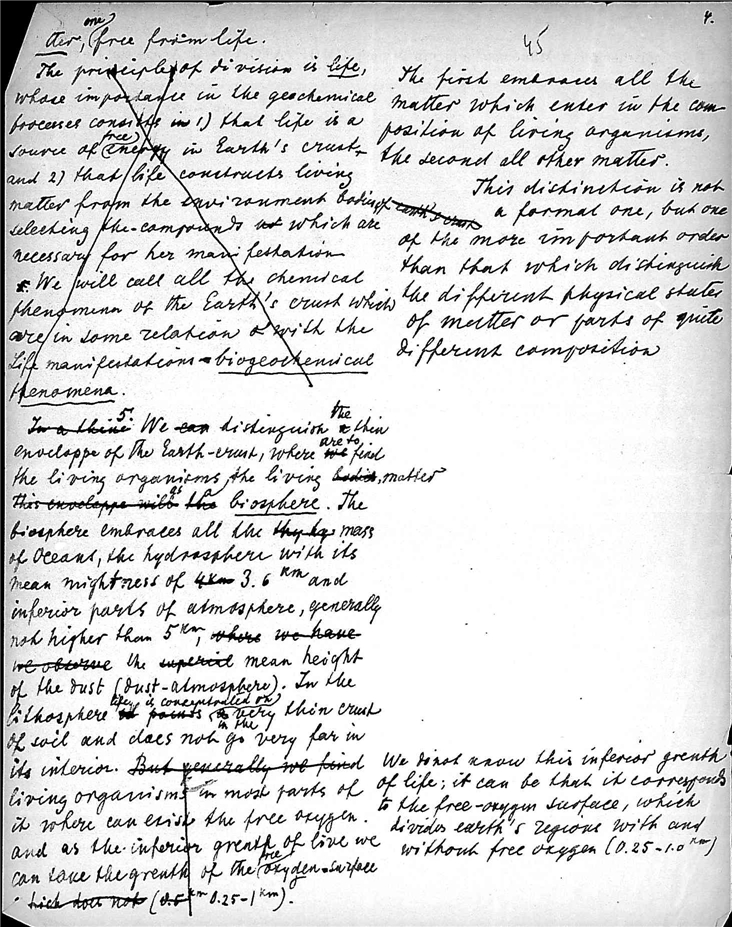 4.
45
ter, one free from life.
The principle of division is life,
whose importance in the geochemical
processes consists in 1) that life is a
source of free energy in Earth's crust,
and 2) that life constructs living
matter from the environment bodies of Earth's crust
selecting the compounds which are
necessary for her manifestation
We will call all the chemical
phenomena of the Earth's crust which
are in some relation with the
life manifestations - biogeochemical
phenomena.
In a thine 5. We can distinguish the thin
enveloppe of the Earth-crust, where we are to find
the living organisms, the living bodies, matter
this enveloppe will as the biosphere. The
biosphere embraces all the mass
of Oceans, the hydrosphere with its
mean mightness of 4 km 3.6 km and
inferior parts of atmosphere, generally
not higher than 5 km, where we have
we observe the superial mean height
of the dust (dust-atmosphere). In the
lithosphere life is concentrated on a very thin crust
in the
of soil and does not go very far in
its interior. But generally we find
living organisms in most parts of
it where can exist the free oxygen.
and as the inferior grenth of live we
can take the grenth of the free oxygen-surface
hich does not (0.5 km 0.25-1 km).
The first embraces all the
matter which enter in the com-
position of living organisms,
the second all other matter.
This distinction is not
a formal one, but one
of the more important order
than that which distinguish
the different physical states
of matter or parts of quite
different composition
We do not know this inferior grenth
of life; it can be that it corresponds
to the free-oxygen surface, which
divides earth's regions with and
without free oxygen (0.25-1.0 km)